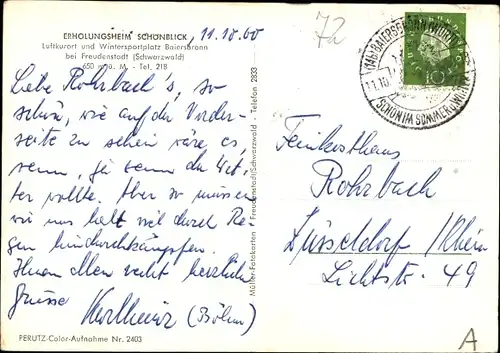 ERHOLUNGSHEIM SCHÖNBLICK, 11.10.60
Luftkurort und Wintersportplatz Baiersbronn
bei Freudenstadt (Schwarzwald)
650 m ü. M. - Tel. 218
Liebe Rohrbach's, so
schön, wie auf der Vorder-
seite zu sehen wäre es,
wenn, ja wenn das Wet-
ter wollte. Aber so müssen
wir uns halt viel durch Re-
gen hindurchkämpfen.
Ihnen allen recht herzliche
Grüsse Karlheinz (Böhm)
PERUTZ-Color-Aufnahme Nr. 2403
Müller-Fotokarten • Freudenstadt/Schwarzwald - Telefon 2833
72
(14b) BAIERSBRONN
11.10
SCHÖN IM SOMMER
10
Feinkosthaus
Rohrbach
Düsseldorf / Rhein
Lichtstr. 49
A